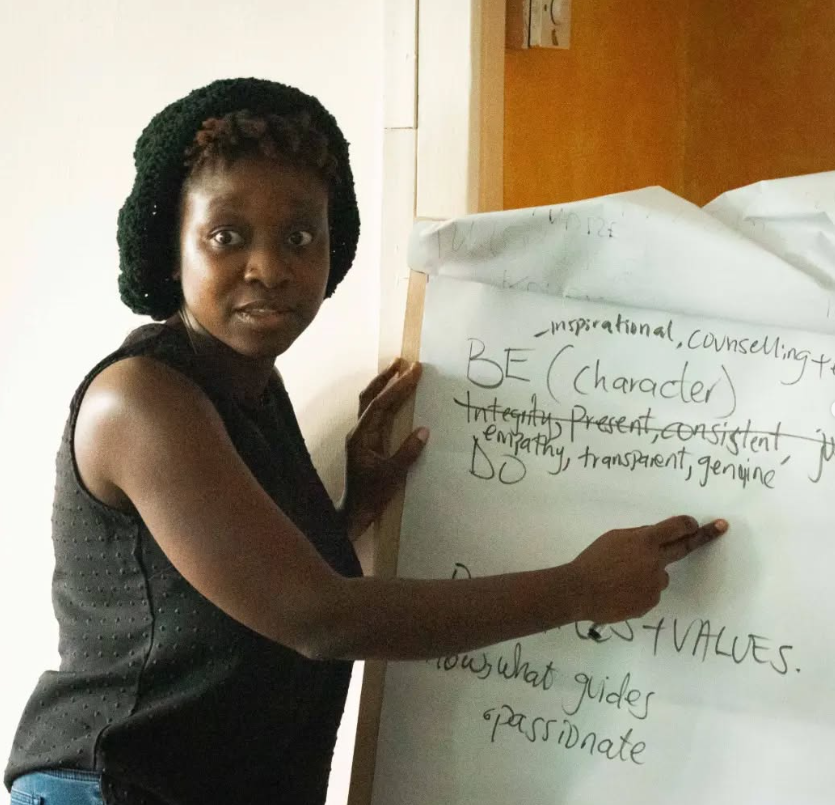 inspirational, counselling +
BE (character)
Integrity, Present, consistent,
empathy, transparent, genuine
DO
+ VALUES.
what guides
•passionate